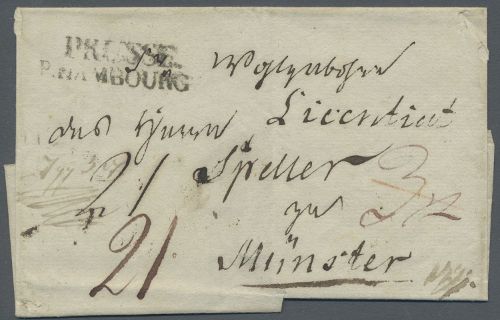 PRUSSE
P. HAMBOURG
Wohlgebohren
des Herrn Licentiat
21 Speller
zu
21
Münster